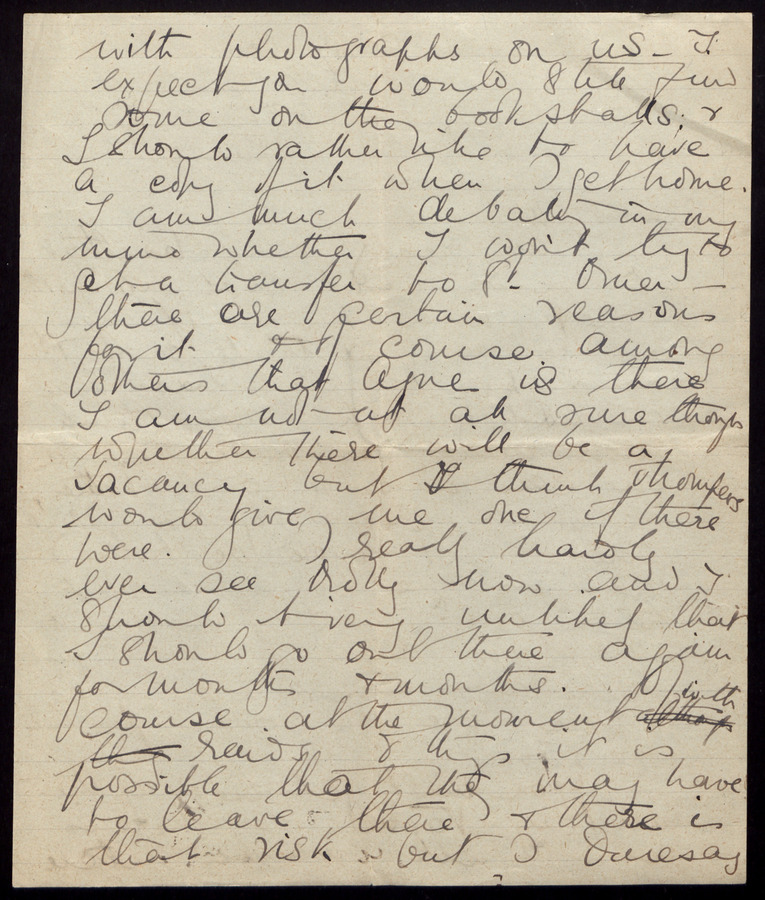 with photographs on us - I
expect you would still find
some on the bookstalls. &
I should rather like to have
a copy of it when I get home.
I am much debating in my
mind whether I won't try to
get a transfer to St. Omer -
there are certain reasons
for it & of course among
others that Agne is there
I am not at all sure though
whether there will be a
vacancy but I think
would give me one if there
were. I really hardly
ever see now and I
should very unlikely that
I should go out there again
for months & months. Of
course at the moment with
raids & things it is
possible that they may have
to leave there & there is
that risk but I daresay